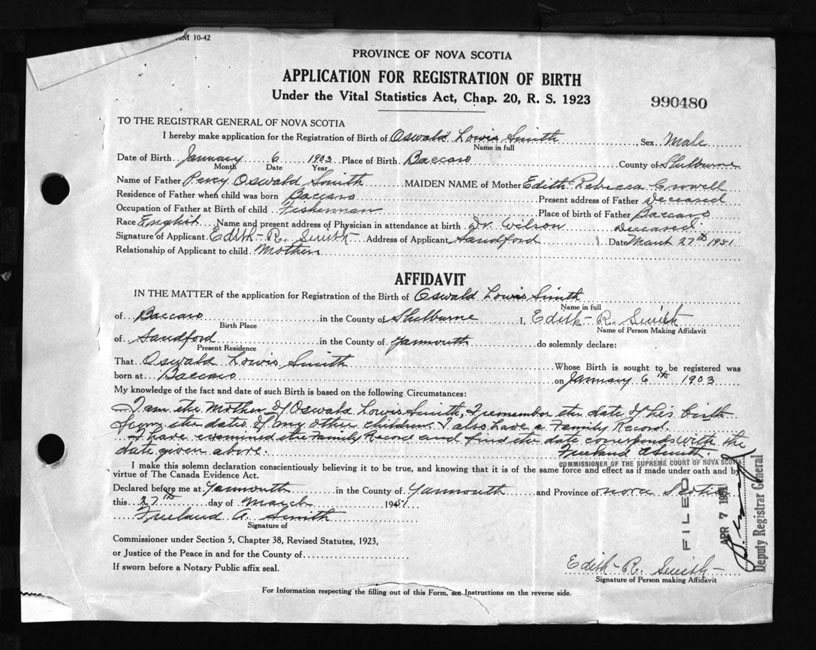 M 10-42
PROVINCE OF NOVA SCOTIA
APPLICATION FOR REGISTRATION OF BIRTH
Under the Vital Statistics Act, Chap. 20, R. S. 1923
990480
TO THE REGISTRAR GENERAL OF NOVA SCOTIA
I hereby make application for the Registration of Birth of Oswald Lowis Smith Sex Male
Name in full
Date of Birth January 6 1903 Place of Birth Baccaro County of Shelburne
Month Date Year
Name of Father Percy Oswald Smith MAIDEN NAME of Mother Edith Rebecca Crowell
Residence of Father when child was born Baccaro Present address of Father Deceased
Occupation of Father at Birth of child Fisherman Place of birth of Father Baccaro
Race English Name and present address of Physician in attendance at birth Dr Wilson Deceased
Signature of Applicant Edith R. Smith Address of Applicant Sandford Date March 27th 1951
Relationship of Applicant to child Mother
AFFIDAVIT
IN THE MATTER of the application for Registration of the Birth of Oswald Lowis Smith
Name in full
of Baccaro in the County of Shelburne I, Edith R. Smith
Birth Place Name of Person Making Affidavit
of Sandford in the County of Yarmouth do solemnly declare:
Present Residence
That Oswald Lowis Smith Whose Birth is sought to be registered was
born at Baccaro on January 6th 1903
My knowledge of the fact and date of such Birth is based on the following Circumstances:
I am the Mother of Oswald Lowis Smith, I remember the date of his birth
from the dates of my other children. I also have a Family Record.
I have examined the Family Record and find the date corresponds with the
date given above. Freeland A Smith.
COMMISSIONER OF THE SUPREME COURT OF NOVA SCOTIA
I make this solemn declaration conscientiously believing it to be true, and knowing that it is of the same force and effect as if made under oath and by
virtue of The Canada Evidence Act.
Declared before me at Yarmouth in the County of Yarmouth and Province of Nova Scotia
this 27th day of March 1951
Freeland A. Smith
Signature of
Commissioner under Section 5, Chapter 38, Revised Statutes, 1923,
or Justice of the Peace in and for the County of
If sworn before a Notary Public affix seal.
FILED
APR 7 1951
Deputy Registrar General
Edith R. Smith
Signature of Person making Affidavit
For Information respecting the filling out of this Form, see Instructions on the reverse side.